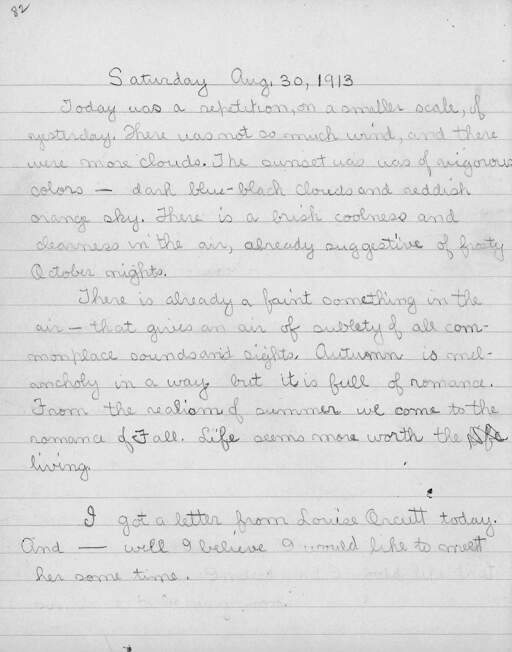 82
Saturday Aug. 30, 1913
Today was a repetition, on a smaller scale, of
yesterday. There was not so much wind, and there
were more clouds. The sunset was was of vigorous
colors — dark blue-black clouds and reddish
orange sky. There is a brisk coolness and
clearness in the air, already suggestive of frosty
October nights.
There is already a faint something in the
air — that gives an air of sublety of all com-
monplace sounds and sights. Autumn is mel-
ancholy in a way but it is full of romance.
From the realism of summer we come to the
romance of Fall. Life seems more worth the
living.
I got a letter from Louise Orcutt today.
And — well I believe I would like to meet
her some time.